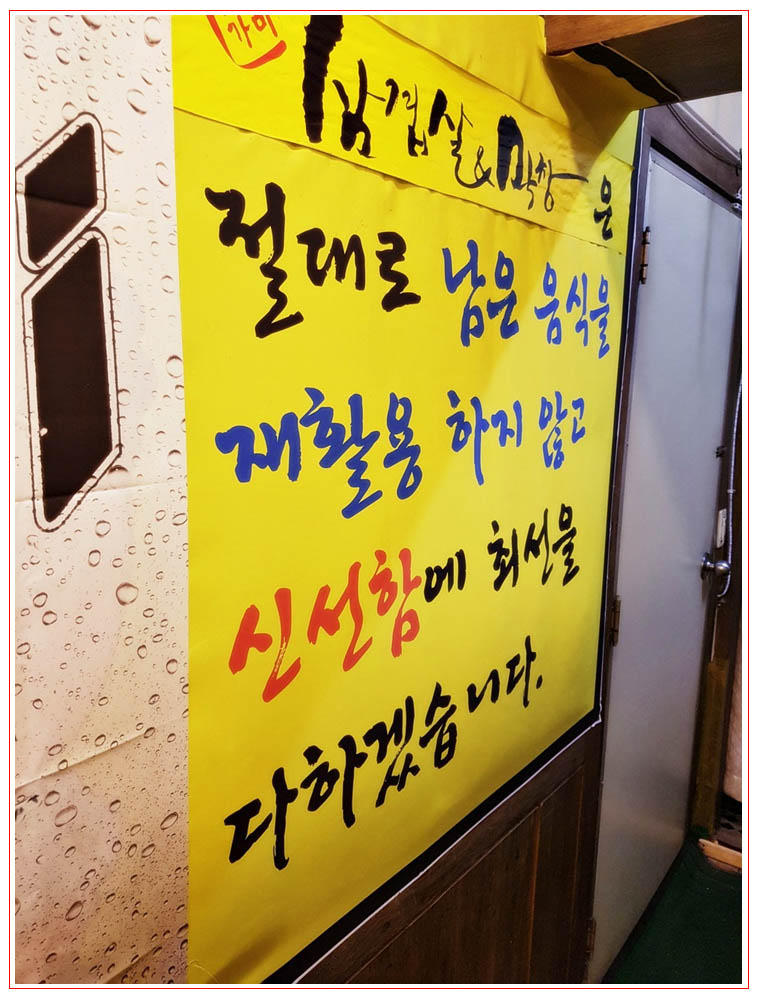 가미
삼겹살&막창은
절대로 남은 음식을
재활용 하지 않고
신선함에 최선을
다하겠습니다.